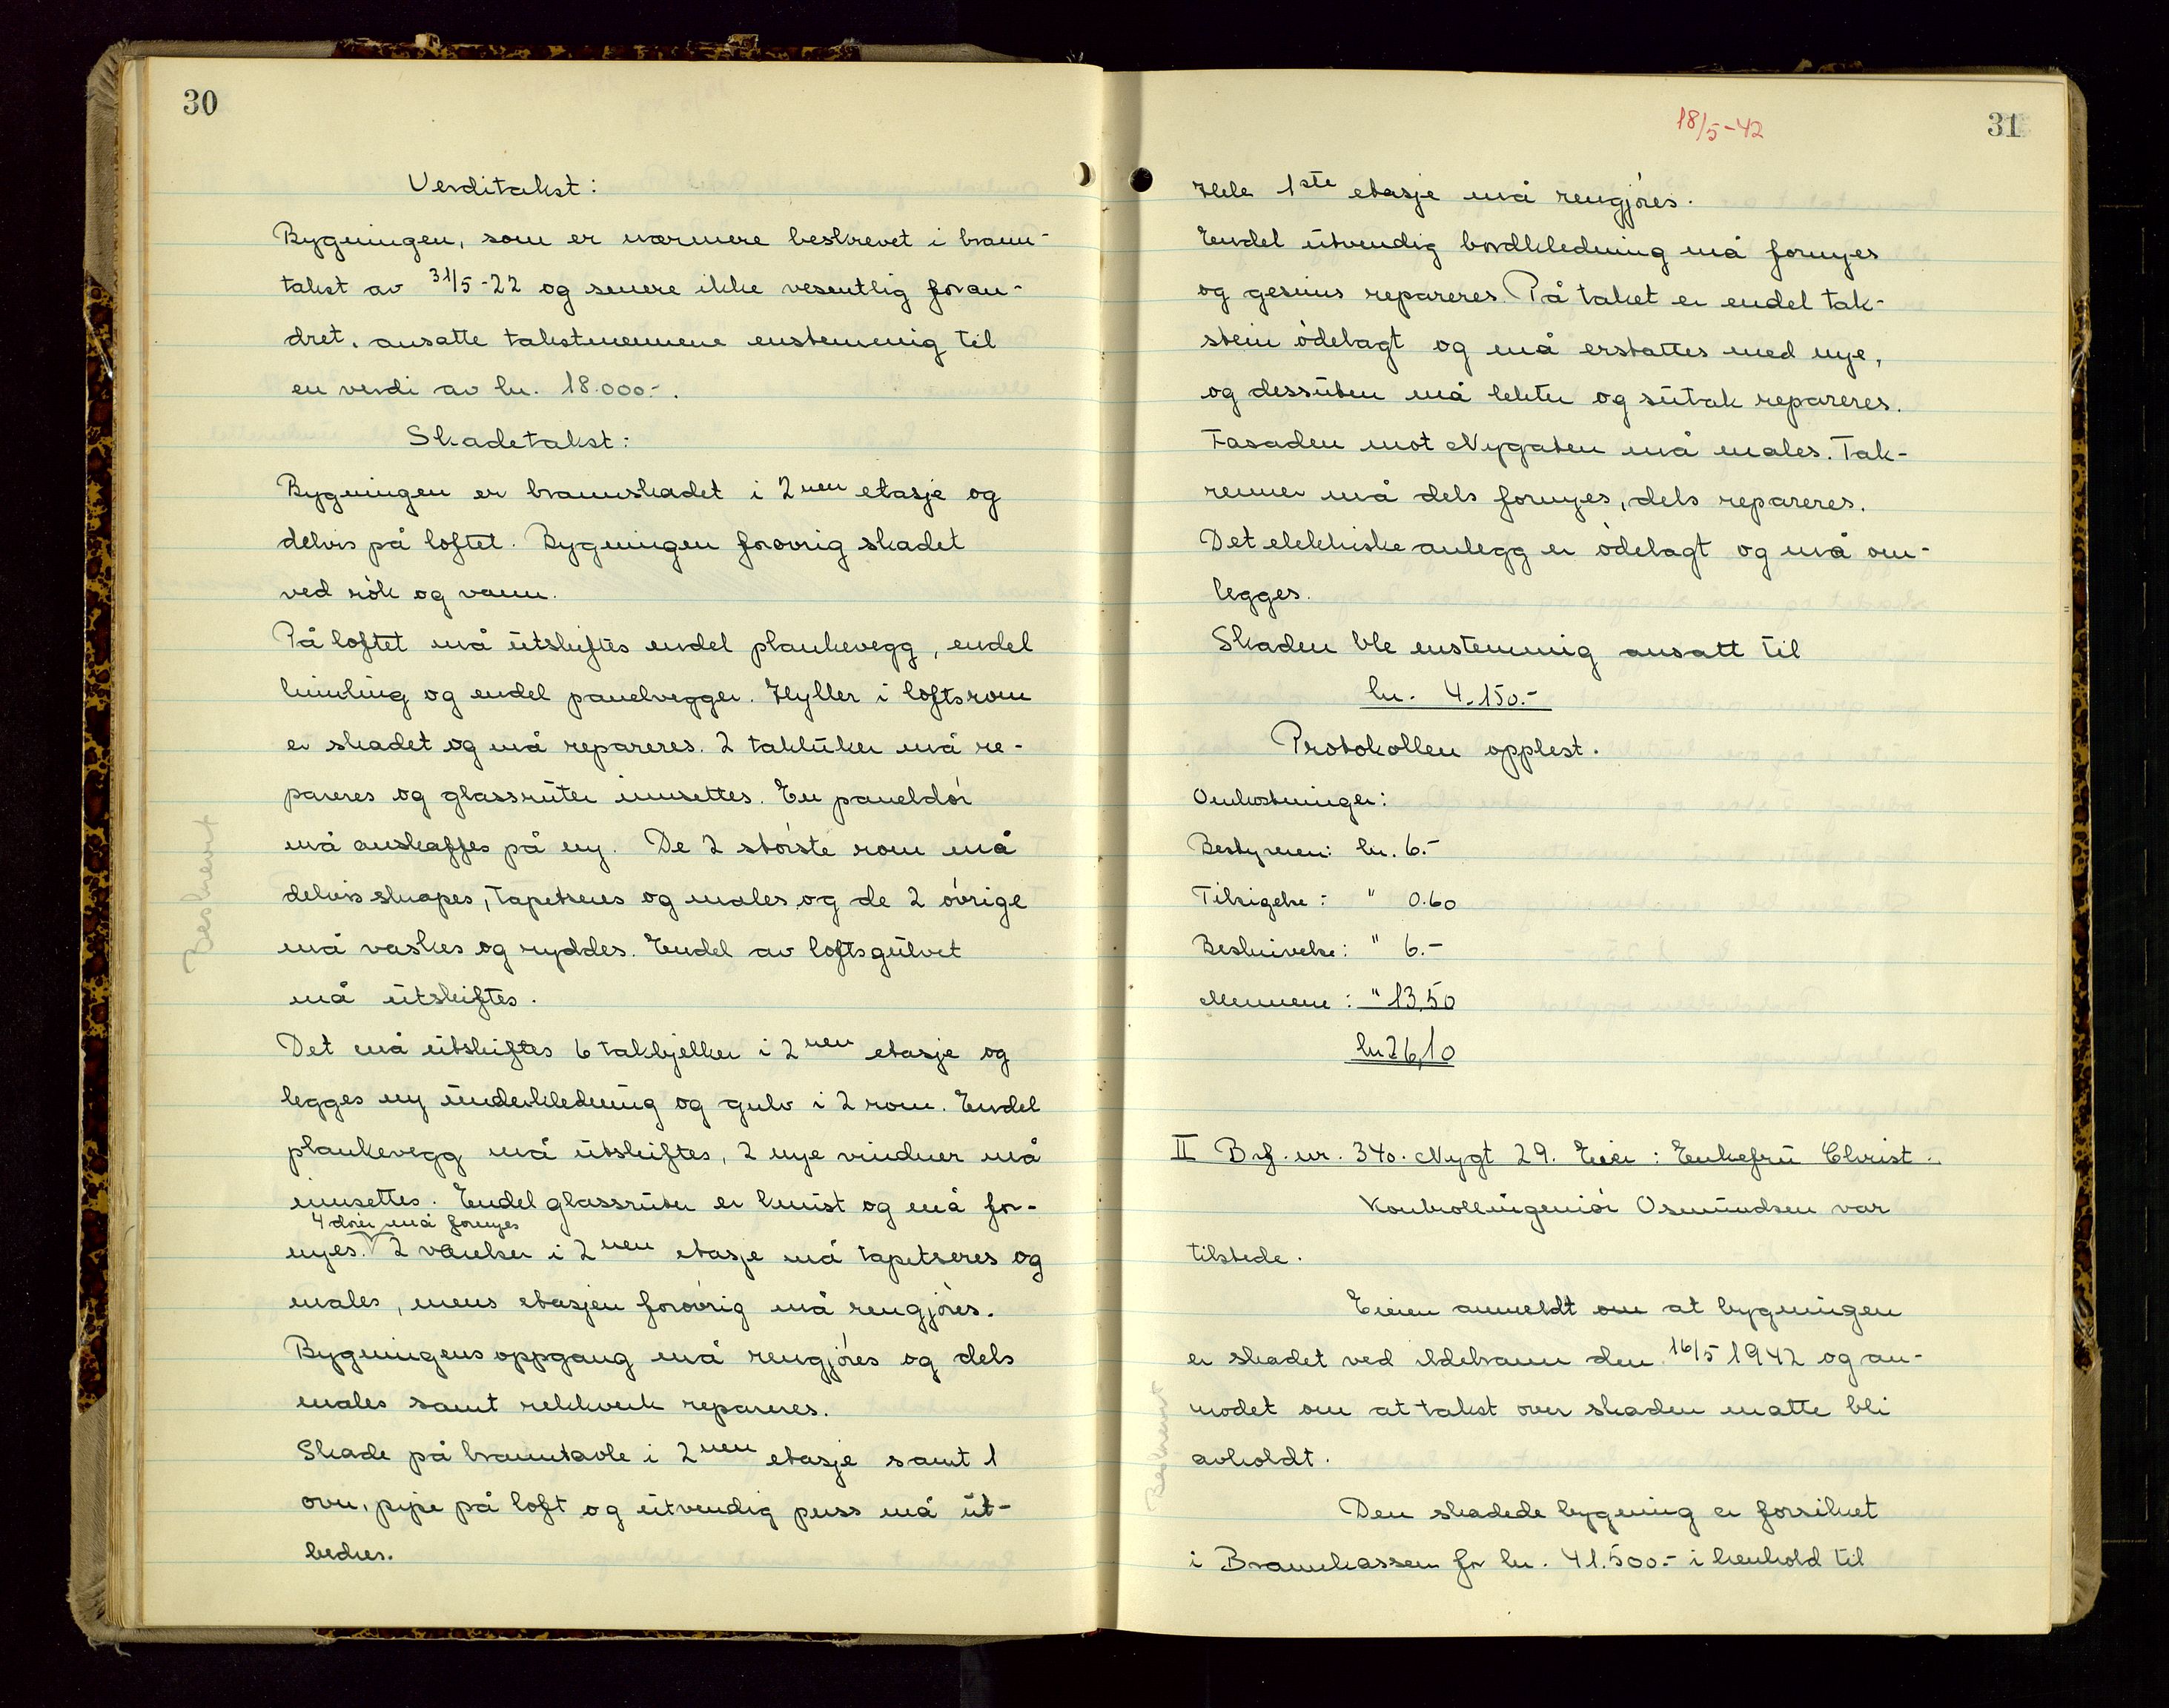 30
Verditakst:
Bygningen, som er nærmere beskrevet i brann-
takst av 31/5-22 og senere ikke vesentlig foran-
dret, ansatte takstmennene enstemmig til
en verdi av kr. 18.000.-.
Skadetakst:
Bygningen er brannskadet i 2nen etasje og
delvis på loftet. Bygningen forøvrig skadet
ved røk og vann.
På loftet må utskiftes endel plankevegg, endel
himling og endel panelvegger. Hyller i loftsrom
er skadet og må repareres. 2 takluker må re-
pareres og glassruter innsettes. En paneldør
må anskaffes på ny. De 2 største rom må
delvis skrapes, tapetseres og males og de 2 øvrige
må vaskes og ryddes. Endel av loftsgulvet
må utskiftes.
Det må utskiftes 6 takbjelker i 2nen etasje og
legges ny underkledning og gulv i 2 rom. Endel
plankevegg må utskiftes, 2 nye vinduer må
innsettes. Endel glassruter er knust og må for-
4 dører må fornyes
nyes. 2 værelser i 2nen etasje må tapetseres og
males, mens etasjen forøvrig må rengjøres.
Bygningens oppgang må rengjøres og dels
males samt rekkverk repareres.
Skade på branntavle i 2nen etasje samt 1
ovn, pipe på loft og utvendig puss må ut-
bedres.
Beskrevet
18/5-42
31
Hele 1ste etasje må rengjøres.
Endel utvendig bordkledning må fornyes
og gesims repareres. På taket er endel tak-
stein ødelagt og må erstattes med nye,
og dessuten må lekter og sutak repareres.
Fasaden mot Nygaten må males. Tak-
renner må dels fornyes, dels repareres.
Det elektriske anlegg er ødelagt og må om-
legges.
Skaden ble enstemmig ansatt til
kr. 4.150.-
Protokollen opplest.
Omkostninger:
Bestyreren: kr. 6.-
Tilsigelse: " 0.60
Beskrivelse: " 6.-
Mennene: " 13,50
kr 26,10
II B.f. nr. 340. Nygt 29. Eier: Enkefru Christ.
Kontrollingeniør Osmundsen var
tilstede.
Eieren anmeldt om at bygningen
er skadet ved ildebrann den 16/5 1942 og an-
modet om at takst over skaden matte bli
avholdt.
Den skadede bygning er forsikret
i Brannkassen for kr. 41.500.- i henhold til
Beskrevet